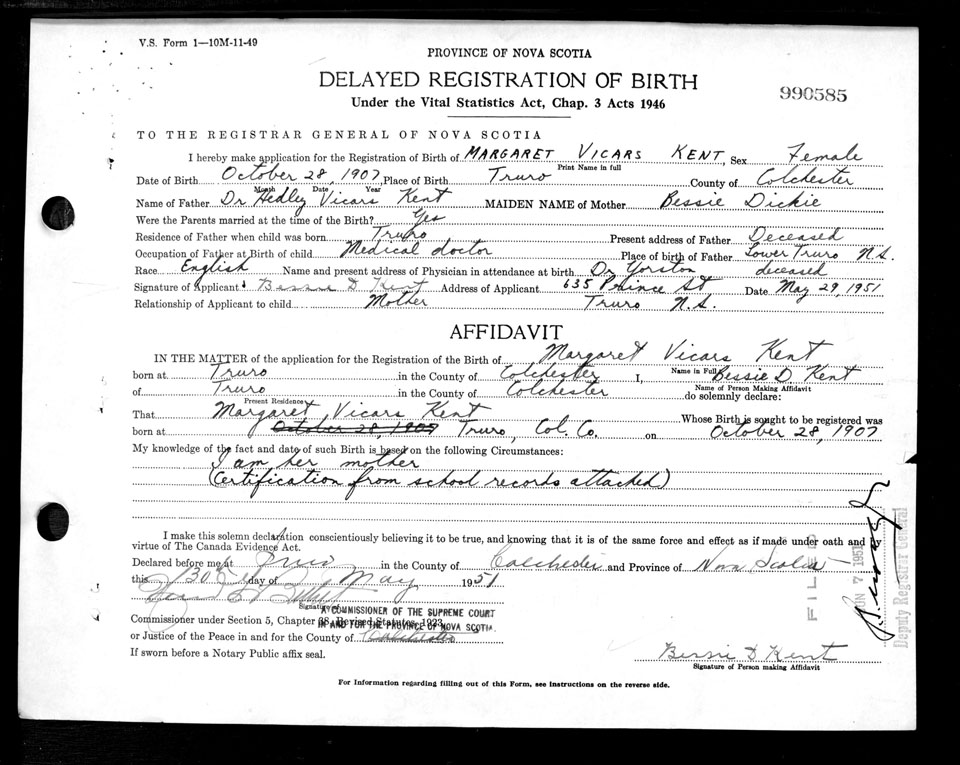 V.S. Form 1—10M-11-49
PROVINCE OF NOVA SCOTIA
DELAYED REGISTRATION OF BIRTH
990585
Under the Vital Statistics Act, Chap. 3 Acts 1946
TO THE REGISTRAR GENERAL OF NOVA SCOTIA
I hereby make application for the Registration of Birth of MARGARET VICARS KENT, Sex Female
Print Name in full
Date of Birth October 28, 1907, Place of Birth Truro County of Colchester
Month Date Year
Name of Father Dr Hedley Vicars Kent MAIDEN NAME of Mother Bessie Dickie
Were the Parents married at the time of the Birth? Yes
Residence of Father when child was born Truro Present address of Father Deceased
Occupation of Father at Birth of child Medical doctor Place of birth of Father Lower Truro N.S.
Race English Name and present address of Physician in attendance at birth Dr Yorston deceased
Signature of Applicant Bessie D Kent Address of Applicant 635 Prince St Date May 29, 1951
Relationship of Applicant to child Mother Truro N.S.
AFFIDAVIT
IN THE MATTER of the application for the Registration of the Birth of Margaret Vicars Kent
Name in Full
born at Truro in the County of Colchester I, Bessie D. Kent
Name of Person Making Affidavit
of Truro in the County of Colchester do solemnly declare:
Present Residence
That Margaret Vicars Kent Whose Birth is sought to be registered was
born at October 28, 1907 Truro, Col. Co. on October 28, 1907
My knowledge of the fact and date of such Birth is based on the following Circumstances:
I am her mother
(Certification from school records attached)
I make this solemn declaration conscientiously believing it to be true, and knowing that it is of the same force and effect as if made under oath and by
virtue of The Canada Evidence Act.
Declared before me at Truro in the County of Colchester and Province of Nova Scotia
this 30th day of May 1951
Signature of
A COMMISSIONER OF THE SUPREME COURT
IN AND FOR THE PROVINCE OF NOVA SCOTIA
Commissioner under Section 5, Chapter 38, Revised Statutes, 1923,
or Justice of the Peace in and for the County of Colchester
If sworn before a Notary Public affix seal.
Bessie D Kent
Signature of Person making Affidavit
For Information regarding filling out of this Form, see instructions on the reverse side.
FILED
JUN 7 1951
Deputy Registrar General